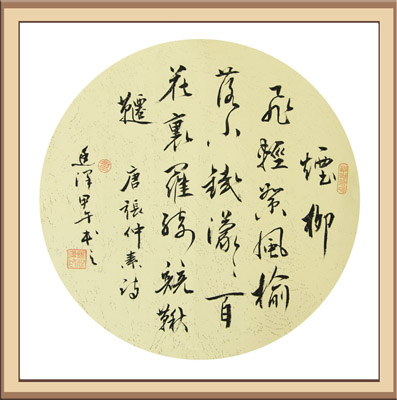 煙柳
飛輕絮風榆
落小錢濛〻百
花裏羅綺競鞦
韆
唐張仲素詩
澤甲午书之